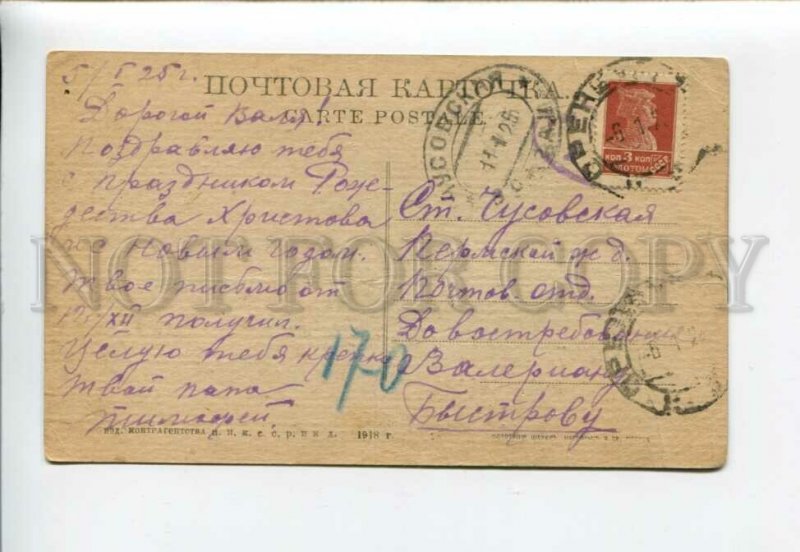 5/I 25 г.
ПОЧТОВАЯ КАРТОЧКА.
CARTE POSTALE.
Дорогой Валя!
Поздравляю тебя
с праздником Рож-
дества Христова
и с Новым годом.
Твое письмо от
17/XII получил.
Целую тебя крепко
твой папа
Тимофей.
170
Ст. Чусовская
Пермской ж. д.
Почтов. отд.
До востребования
Валериану
Быстрову
ЧУСОВСКАЯ
11.1.25
КОП 3 КОП
ЗОЛОТОМ
Изд. КОНТРАГЕНТСТВА 1918 г.
NOT FOR COPY